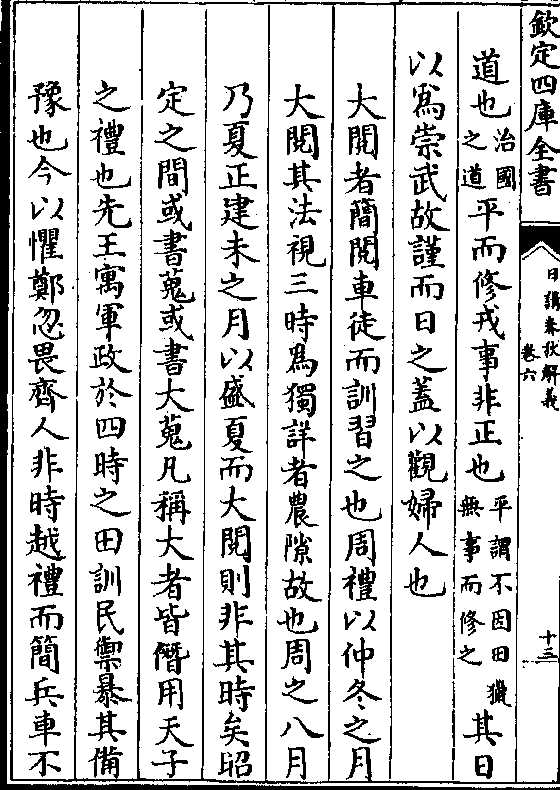 欽定四庫全書
日講春秋解義
卷六
十三
道也治國之道平而修戎事非正也平謂不因田獵無事而修之其日
以爲崇武故謹而日之蓋以觀婦人也
大閱者簡閱車徒而訓習之也周禮以仲冬之月
大閱其法視三時爲獨詳者農隙故也周之八月
乃夏正建未之月以盛夏而大閱則非其時矣昭
定之間或書蒐或書大蒐凡稱大者皆僭用天子
之禮也先王寓軍政於四時之田訓民禦暴其備
豫也今以懼鄭忽畏齊人非時越禮而簡兵車不